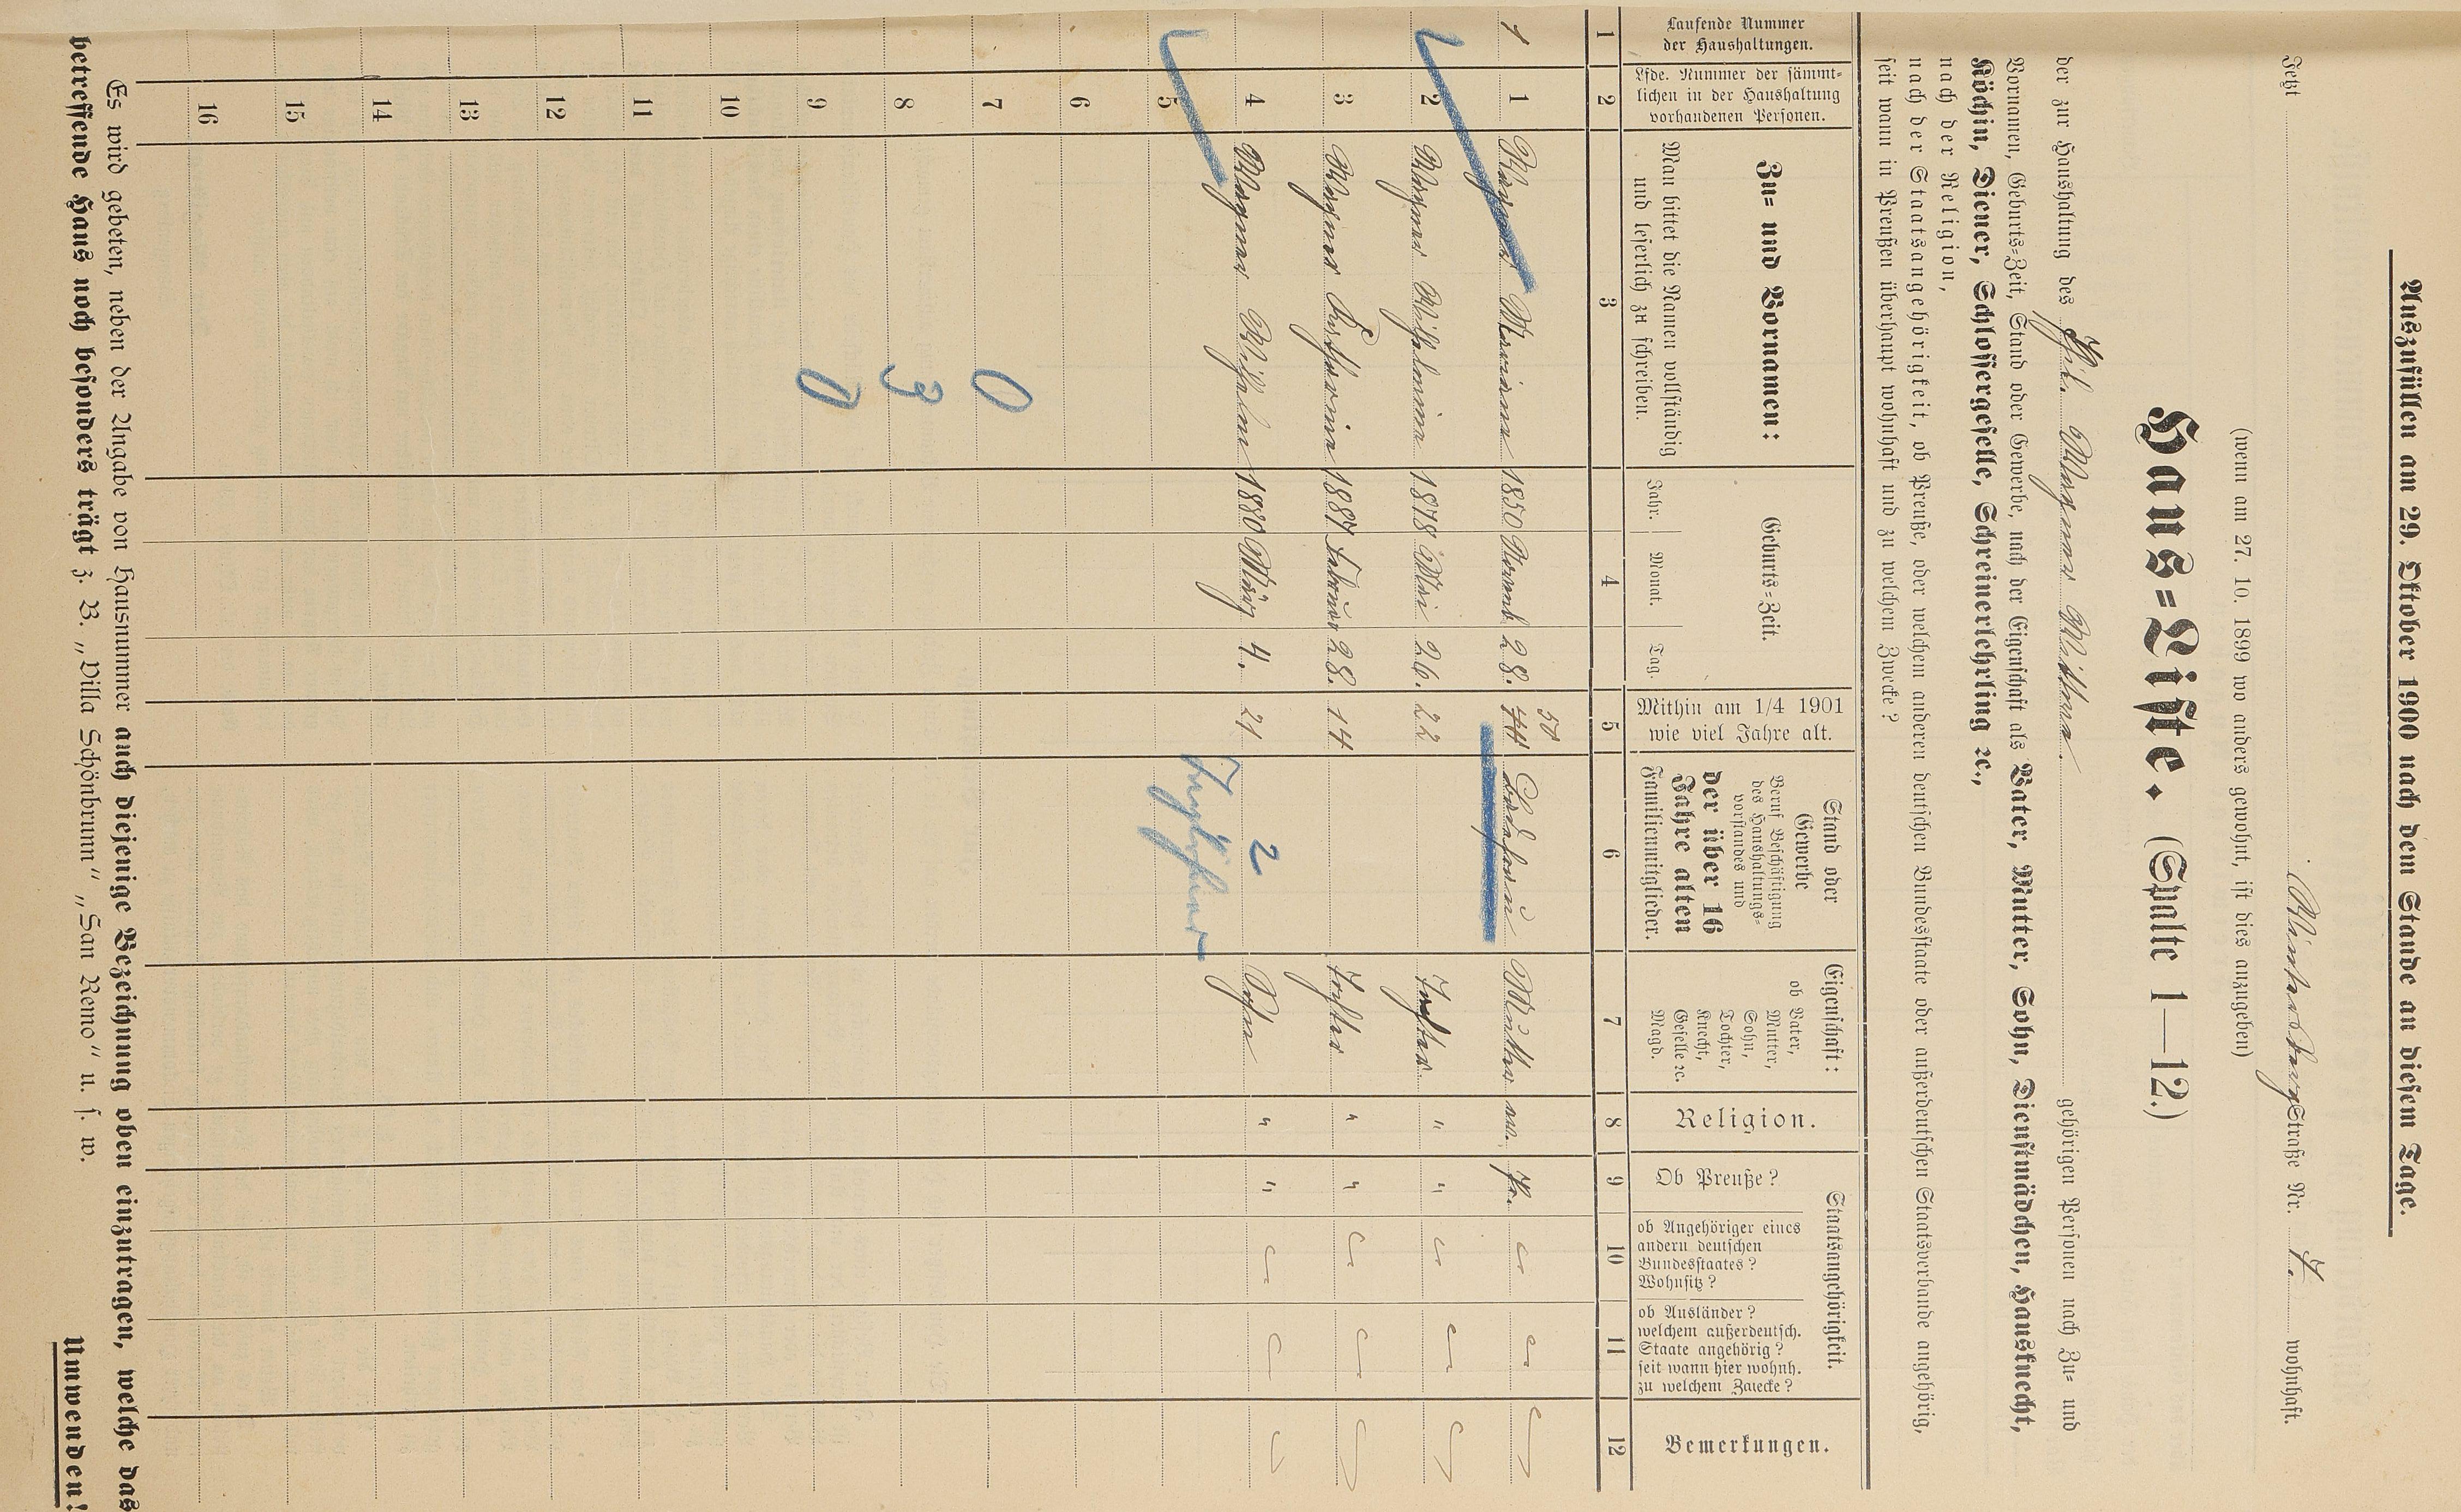 Auszufüllen am 29. Oktober 1900 nach dem Stande an diesem Tage.
Jetzt Winterberg Straße Nr. 7. wohnhaft.
(wenn am 27. 10. 1899 wo anders gewohnt, ist dies anzugeben)
Haus=Liste. (Spalte 1—12.)
der zur Haushaltung des Phil. Wagner Wittwe gehörigen Personen nach Zu= und
Vornamen, Geburts=Zeit, Stand oder Gewerbe, nach der Eigenschaft als Vater, Mutter, Sohn, Dienstmädchen, Hausknecht,
Köchin, Diener, Schlossergeselle, Schreinerlehrling ꝛc.,
nach der Religion,
nach der Staatsangehörigkeit, ob Preuße, oder welchem anderen deutschen Bundesstaate oder außerdeutschen Staatsverbande angehörig,
seit wann in Preußen überhaupt wohnhaft und zu welchem Zwecke?
Laufende Nummer
der Haushaltungen.
Lfde. Nummer der sämmt=
lichen in der Haushaltung
vorhandenen Personen.
Zu= und Vornamen:
Man bittet die Namen vollständig
und leserlich zu schreiben.
Geburts=Zeit.
Jahr. Monat. Tag.
Mithin am 1/4 1901
wie viel Jahre alt.
Stand oder
Gewerbe
Beruf Beschäftigung
des Haushaltungs=
vorstandes und
der über 16
Jahre alten
Familienmitglieder.
Eigenschaft:
ob Vater,
Mutter,
Sohn,
Tochter,
Knecht,
Geselle ꝛc.
Magd.
Religion.
Staatsangehörigkeit.
Ob Preuße?
ob Angehöriger eines
andern deutschen
Bundesstaates?
Wohnsitz?
ob Ausländer?
welchem außerdeutsch.
Staate angehörig?
seit wann hier wohnh.
zu welchem Zwecke?
Bemerkungen.
1 2 3 4 5 6 7 8 9 10 11 12
50
1 1 Wagner Mariana 1850 Novemb 28. 44 Mutter ev. Pr.
2 Wagner Wilhelmina 1878 Mai 26. 22 Tochter " "
3 Wagner Katharina 1887 Februar 28. 14 Tochter " "
4 Wagner Wilhelm 1880 März 4. 21 2 Sohn " "
5 Taglöhner
6
7 0
8 3
9 0
10
11
12
13
14
15
16
Es wird gebeten, neben der Angabe von Hausnummer auch diejenige Bezeichnung oben einzutragen, welche das
betreffende Haus noch besonders trägt z. B. „Villa Schönbrunn“ „San Remo“ u. s. w.
Umwenden!